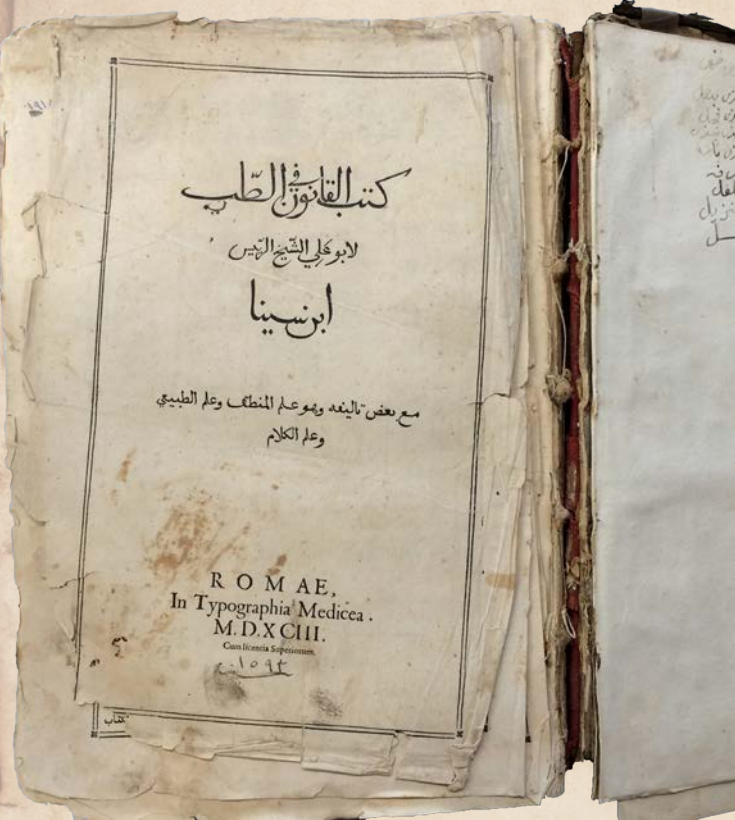 كتب القانون في الطّب
لابو علي الشّيخ الرّيس
ابن سينا
مع بعض تاليفه وهو علم المنطق وعلم الطبيعي
وعلم الكلام
ROMAE,
In Typographia Medicea.
M.D.XCIII.
Cum licentia Superiorum.
١٥٩٣
كتاب
١٩١